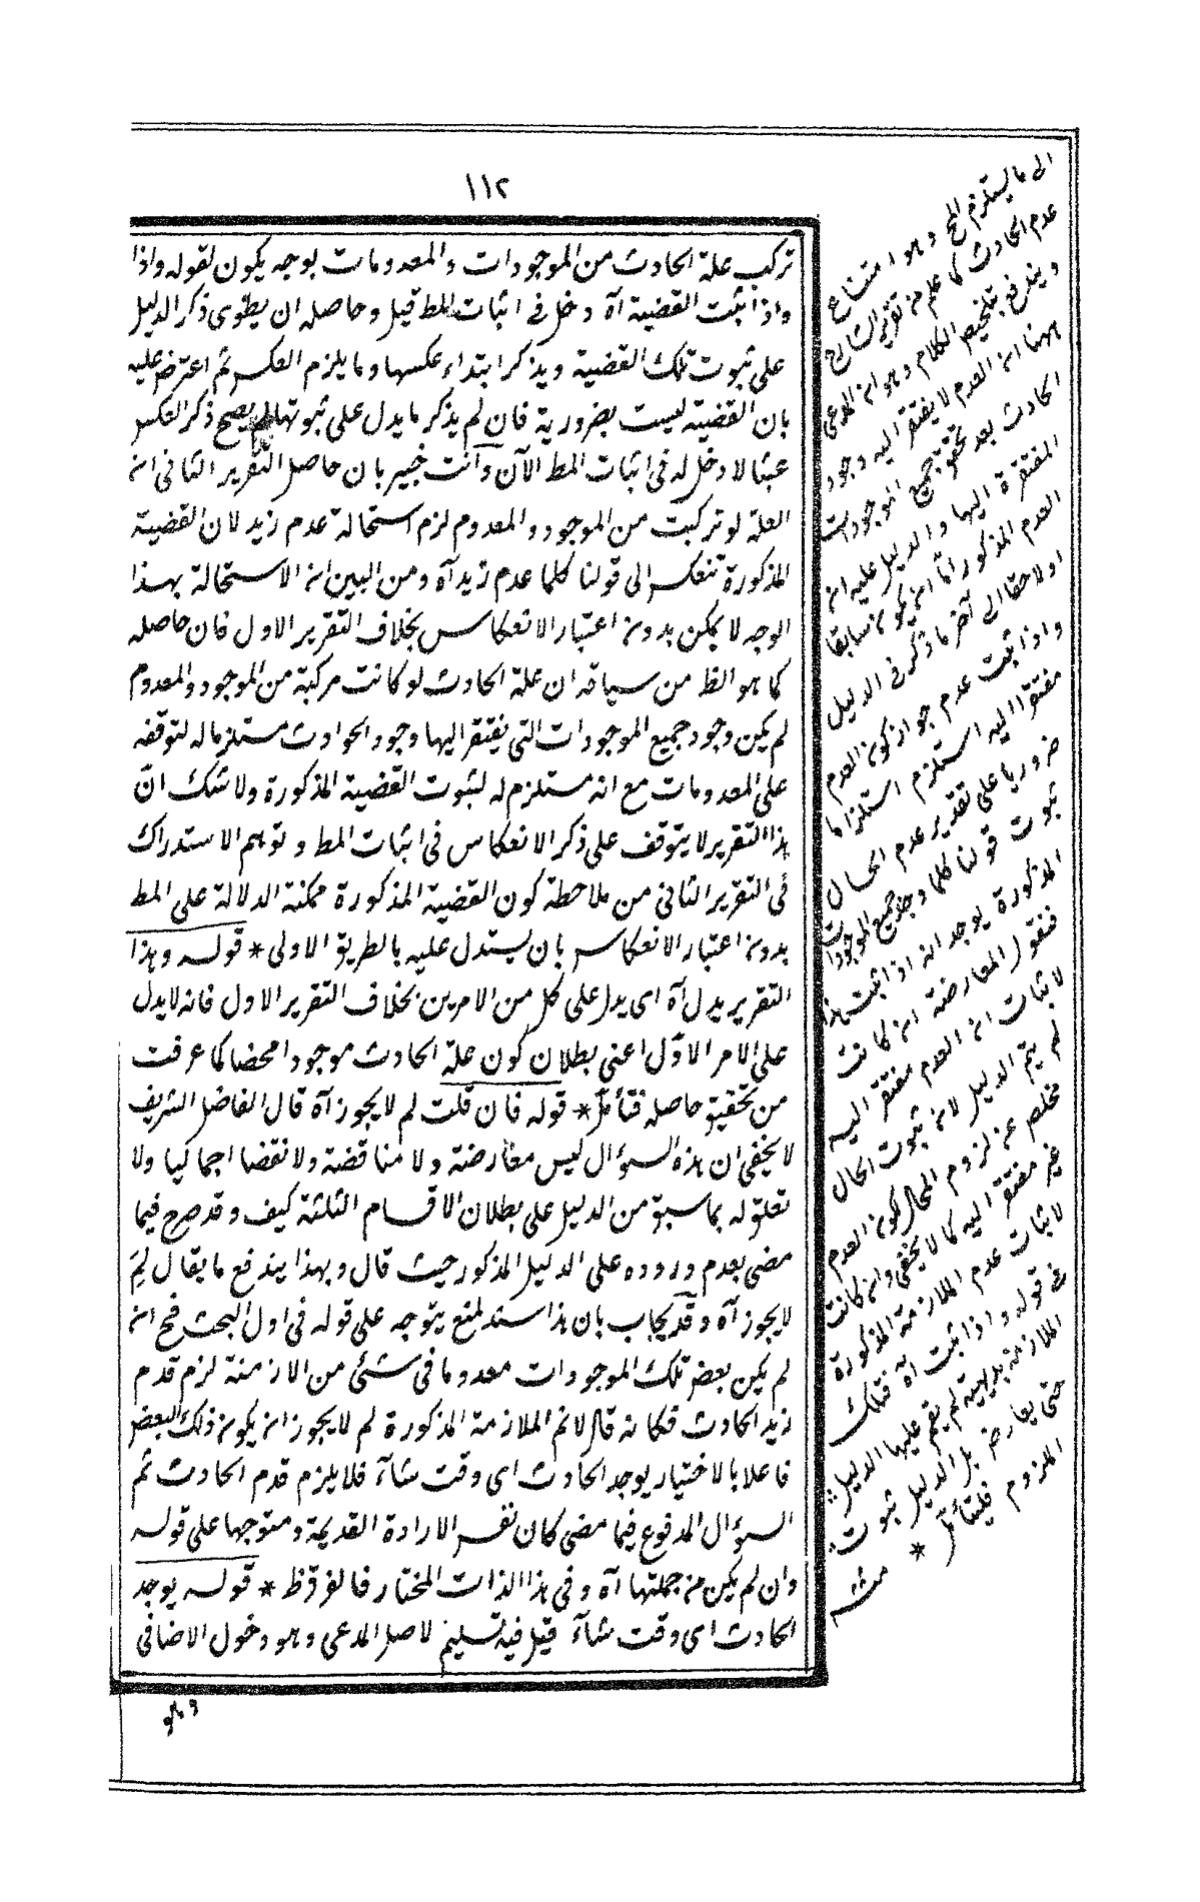 ١١٢
تركب علة الحادث من الموجودات والمعدومات بوجه يكون لقوله واذا
واذا ثبت القضية آه دخل فى اثبات المط قيل وحاصله ان يطوى ذكر الدليل
على ثبوت تلك القضية ويذكر ابتداء عكسها وما يلزم العكس ثم اعترض عليه
بان القضية ليست بضرورية فان لم يذكر ما يدل على ثبوتها لم يصح ذكر العكس
عبثا لا دخل له فى اثبات المط الآن وانت خبير بان حاصل التقرير الثانى انه
العلة لو تركبت من الموجود والمعدوم لزم استحالة عدم زيد لان القضية
المذكورة تنعكس الى قولنا كلما عدم زيد آه ومن البين انه الاستحالة بهذا
الوجه لا يمكن بدونه اعتبار الانعكاس بخلاف التقرير الاول فان حاصله
كما هو الظ من سياقه ان علة الحادث لو كانت مركبة من الموجود والمعدوم
لم يكن وجود جميع الموجودات التى يفتقر اليها وجود الحوادث مستلزما له لتوقفه
على المعدومات مع انه مستلزم له لثبوت القضية المذكورة ولا شك انّ
هذا التقرير لا يتوقف على ذكر الانعكاس فى اثبات المط وتوهم الاستدراك
فى التقرير الثانى من ملاحظة كون القضية المذكورة ممكنة الدلالة على المط
بدونه اعتبار الانعكاس بان يستدل عليه بالطريق الاولى * قوله وهذا
التقرير يدل آه اى يدل على كل من الامرين بخلاف التقرير الاول فانه لا يدل
على الامر الاول اعنى بطلان كون علة الحادث موجودا محضا كما عرفت
من تحقيق حاصله فتأمل * قوله فان قلت لم لا يجوز آه قال الفاضل الشريف
لا يخفى ان هذه السؤال ليس معارضة ولا مناقضة ولا نقضا اجماليا ولا
تعلق له بما سبق من الدليل على بطلان الاقسام الثلثة كيف وقد صرح فيما
مضى بعدم وروده على الدليل المذكور حيث قال وبهذا يندفع ما يقال لِمَ
لا يجوز آه وقد يجاب بان هذا سند لمنع يتوجه على قوله فى اول البحث فح انه
لم يكن بعض تلك الموجودات معدوما فى شئى من الازمنة لزم قدم
زيد الحادث فكانه قال لانم الملازمة المذكورة لم لا يجوز انه يكونه ذلك البعض
فاعلا بالاختيار يوجد الحادث اى وقت شآء فلا يلزم قدم الحادث ثم
السؤال المدفوع فيما مضى كان نفس الارادة القديمة ومتوجها على قوله
وان لم يكن من جملتها آه وفى هذا الذات المختار فالفرق ظ * قوله يوجد
الحادث اى وقت شآء قيل فيه تسليم لاصل المدعى وهو دخول الاضافى
وهو
الى ما يستلزم المح وهو امتناع
عدم الحادث كما علم من تقرير الشارح
ويندفع بتلخيص الكلام وهو انه المدعى
ههنا انه العدم لا يفتقر اليه وجود
الحادث بعد تحقق جميع الموجودات
المفتقرة اليها والدليل عليه انه
العدم المذكور امّا انه يكونه سابقا
او لاحقا الى آخر ما ذكر فى الدليل
واذا ثبت عدم جواز كونه العدم
مفتقرا اليه استلزم استلزاما
ضروريا على تقدير عدم الحال
ثبوت قولنا كلما وجد جميع الموجودات
المذكورة يوجد انه اذا ثبت هذا
فنقول المعارضة انه كانت
لاثبات انه العدم مفتقر اليه
لم يتم الدليل لانه ثبوت الحال
مخلص عن لزوم المحال لكونه العدم
غير مفتقر اليه كما لا يخفى وانه كانت
لاثبات عدم الملازمة المذكورة
فى قوله واذا ثبت آه فتلك
الملازمة بديهية لم يقم عليها الدليل
حتى يعارض بل الدليل ثبوت
الملزوم فليتأمل *
منه